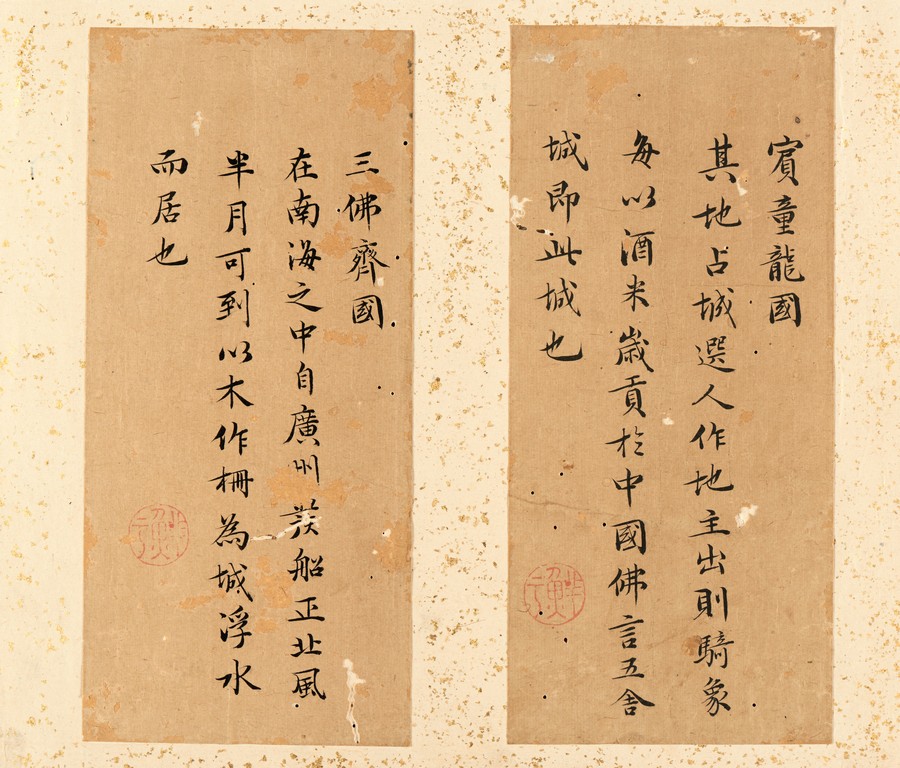 賓童龍國
其地占城選人作地主出則騎象
每以酒米歲貢於中國佛言五舍
城即此城也
三佛齊國
在南海之中自廣州發船正北風
半月可到以木作柵為城浮水
而居也